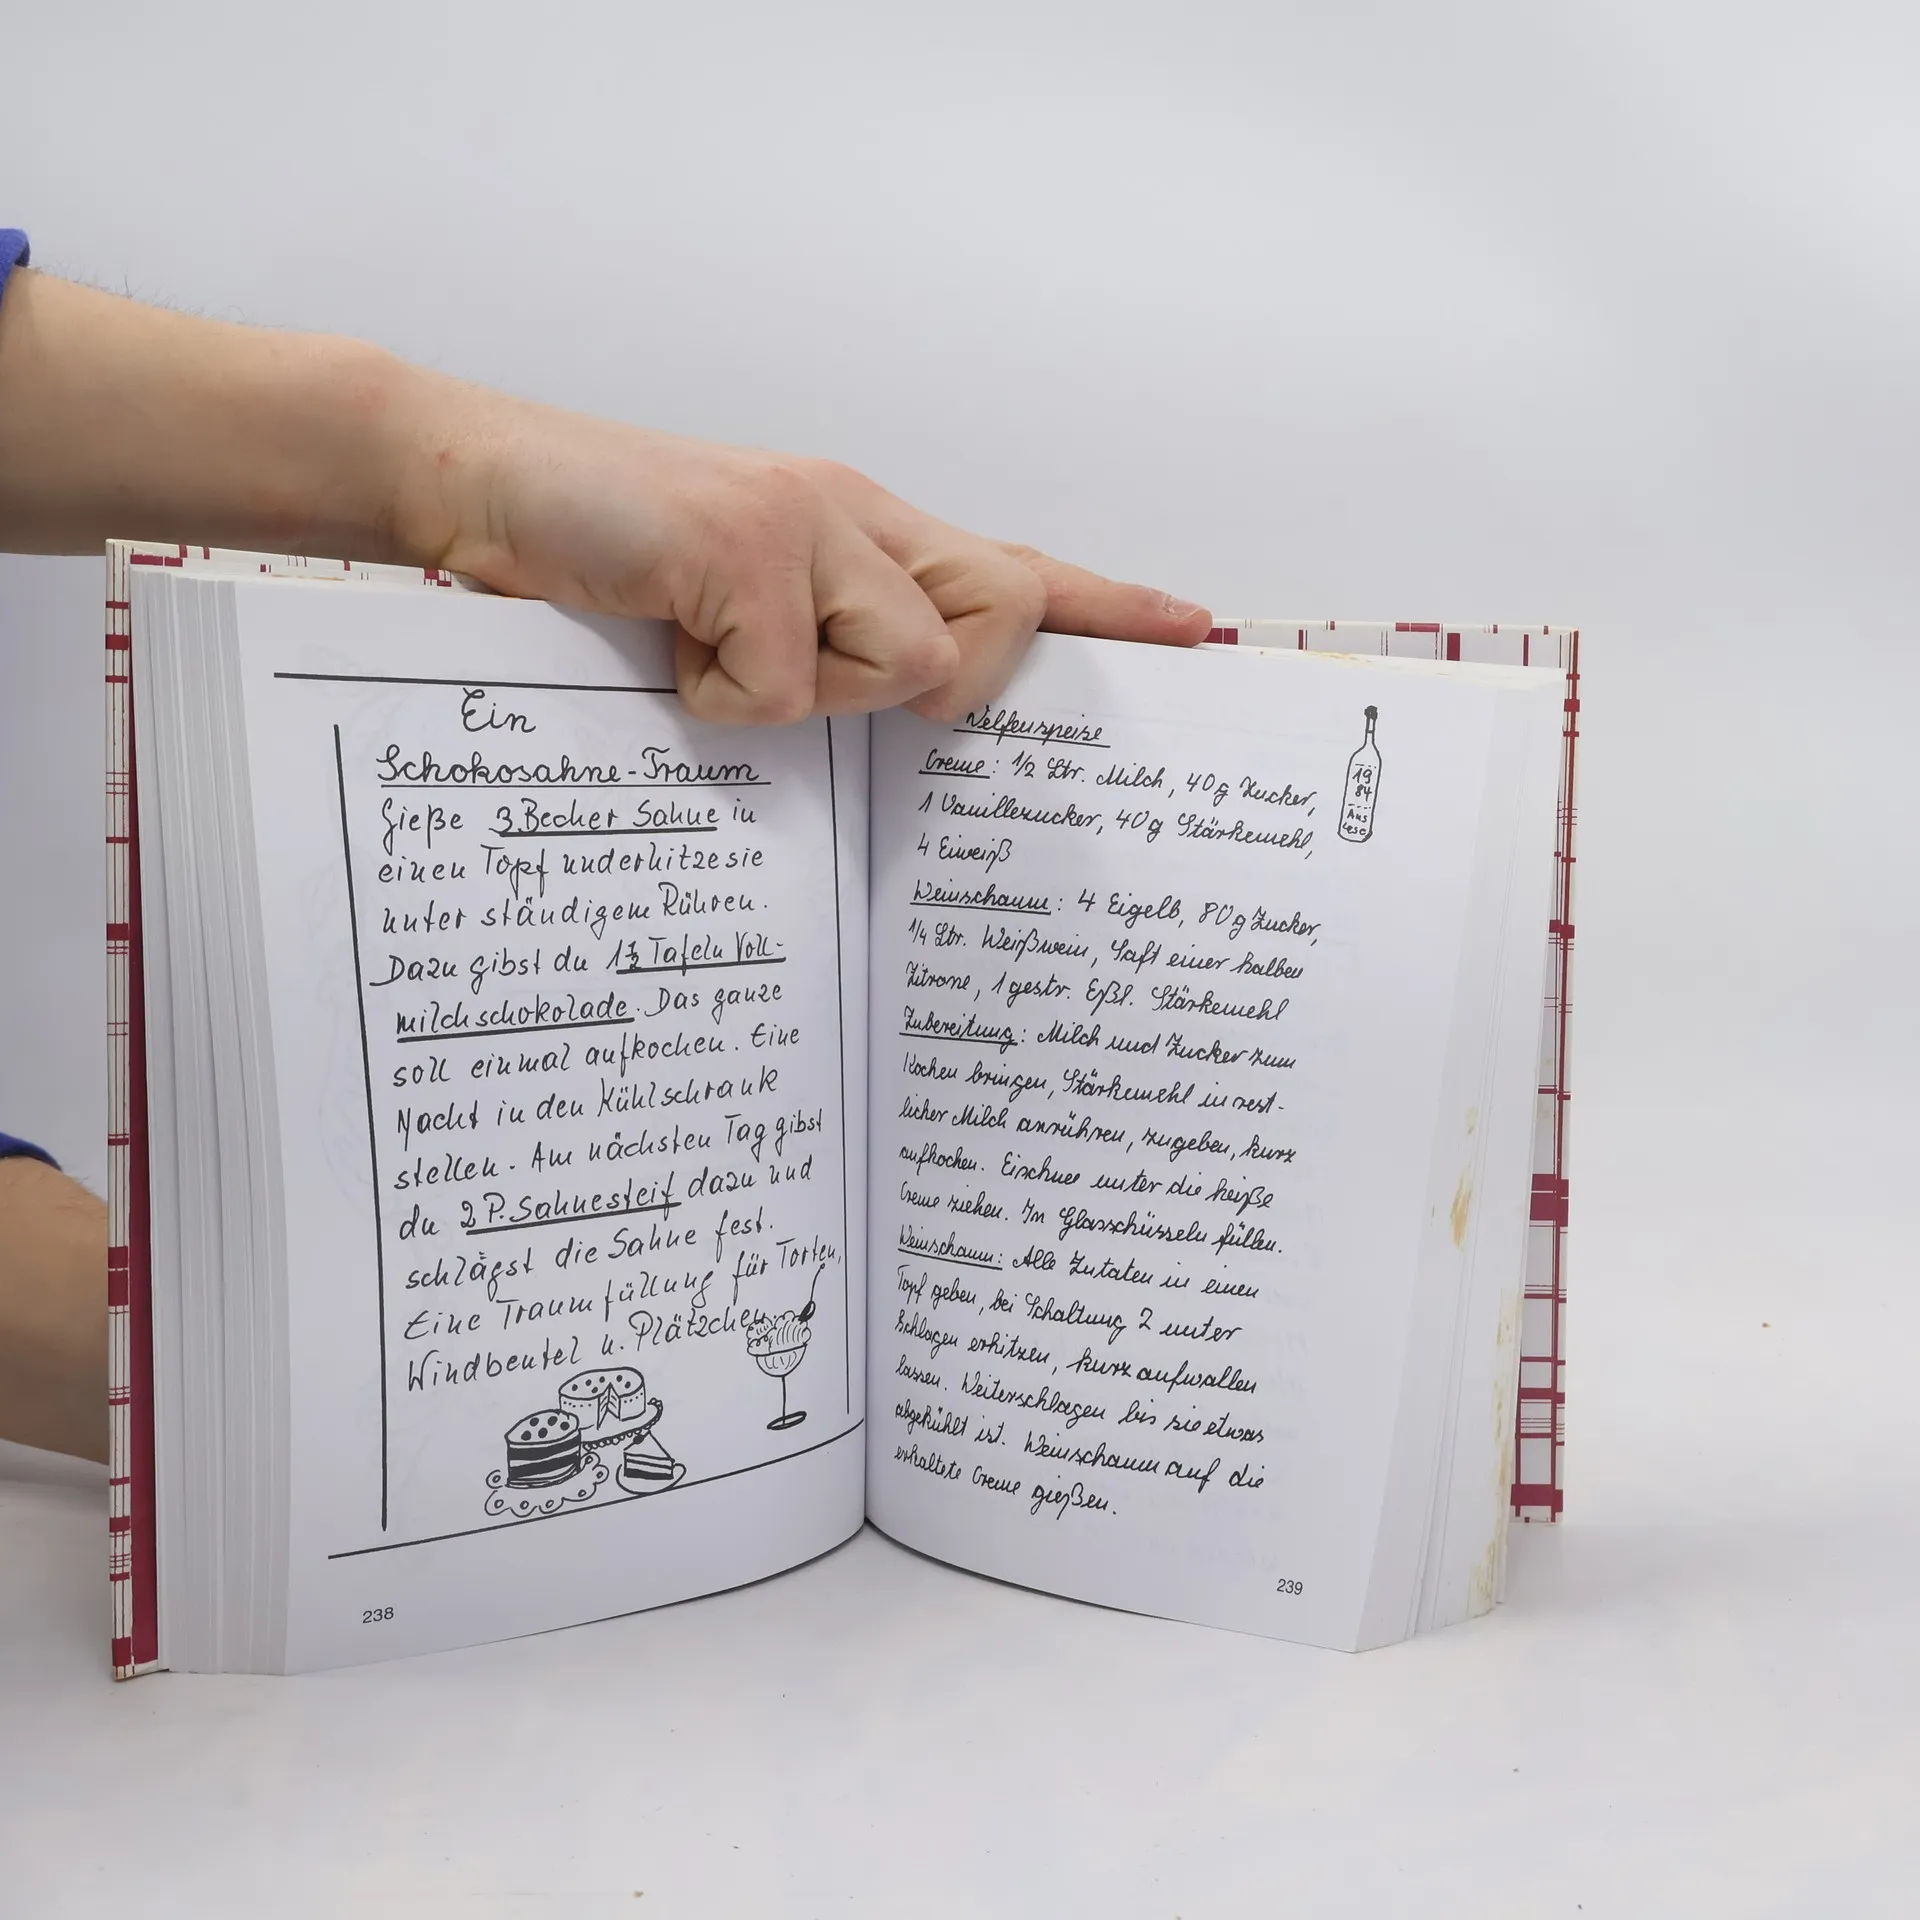 Ein
Schokosahne-Traum
Gieße 3 Becher Sahne in
einen Topf und erhitze sie
unter ständigem Rühren.
Dazu gibst du 1½ Tafeln Voll-
milchschokolade. Das ganze
soll einmal aufkochen. Eine
Nacht in den Kühlschrank
stellen. Am nächsten Tag gibst
du 2 P. Sahnesteif dazu und
schlägst die Sahne fest.
Eine Traumfüllung für Torten,
Windbeutel u. Plätzchen.
238
Welfenspeise
Creme: 1/2 Ltr. Milch, 40g Zucker,
1 Vanillezucker, 40g Stärkemehl,
4 Eiweiß
Weinschaum: 4 Eigelb, 80g Zucker,
1/4 Ltr. Weißwein, Saft einer halben
Zitrone, 1 gestr. Eßl. Stärkemehl
Zubereitung: Milch und Zucker zum
Kochen bringen, Stärkemehl in rest-
licher Milch anrühren, zugeben, kurz
aufkochen. Eischnee unter die heiße
Creme ziehen. In Glasschüsseln füllen.
Weinschaum: Alle Zutaten in einen
Topf geben, bei Schaltung 2 unter
Schlagen erhitzen, kurz aufwallen
lassen. Weiterschlagen bis sie etwas
abgekühlt ist. Weinschaum auf die
erhaltete Creme gießen.
19
84
Aus
lese
239